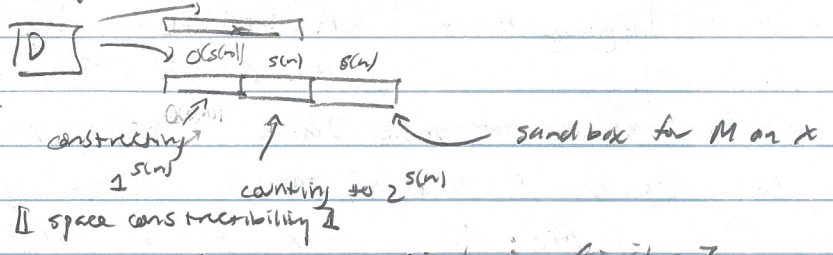 D
x
O(s(n)) s(n) s(n)
constructing
1^s(n)
counting to 2^s(n)
sandbox for M on x
[[ space constructibility ]]